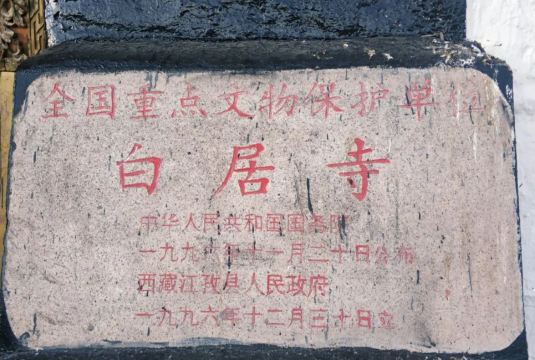 全国重点文物保护单位
白居寺
中华人民共和国国务院
一九九六年十一月二十日公布
西藏江孜县人民政府
一九九六年十二月三十日立